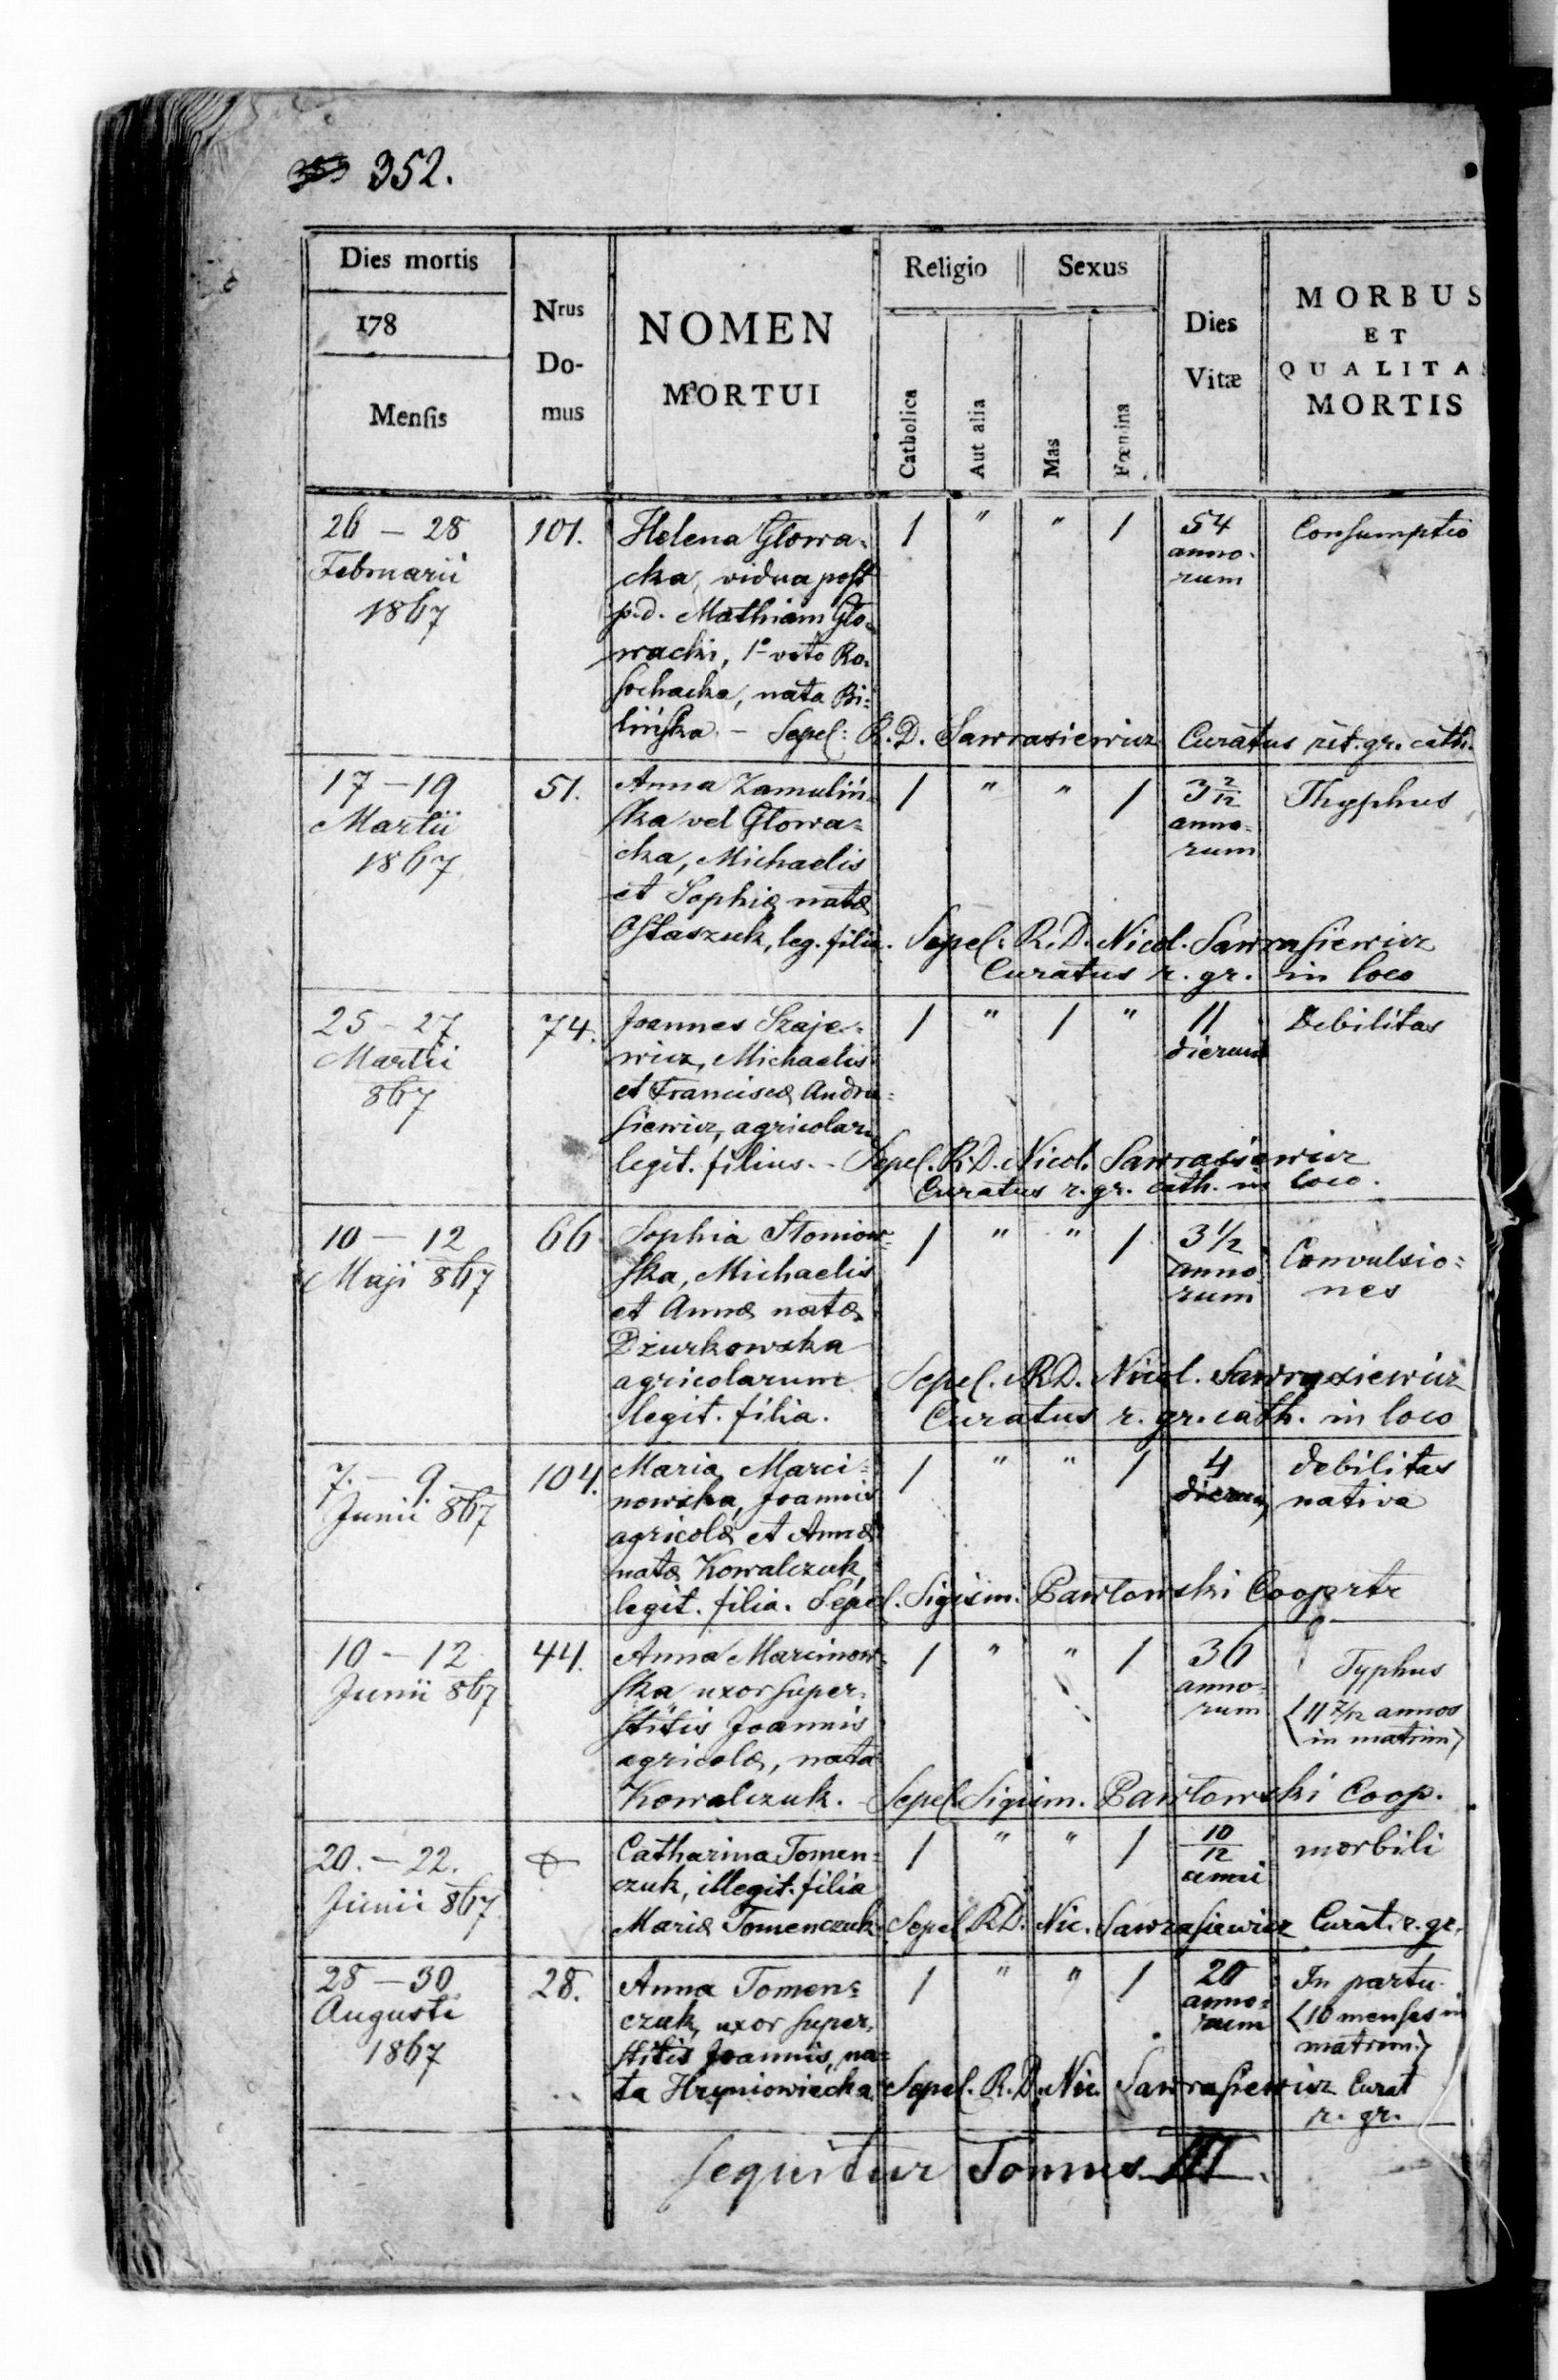 352.
Dies mortis
178
Mensis
Nrus
Do-
mus
NOMEN
MORTUI
Religio
Sexus
Catholica
Aut alia
Mas
Fœmina
Dies
Vitæ
MORBUS
ET
QUALITAS
MORTIS
26 – 28
Februarii
1867
101.
Helena Głowa-
cka, vidua post
p.d. Mathiam Gło-
wacki, 1º voto Ro-
sochacka, nata Bi-
lińska. – Sepel: R.D. Sawrasiewicz Curatus rit. gr. cath.
1 " " 1
54
anno-
rum
Consumptio
17 – 19
Martii
1867
51.
Anna Zamuliń-
ska vel Głowa-
cka, Michaelis
et Sophiæ natæ
Ostaszuk, leg. filia. Sepel: R.D. Nicol. Sawrasiewicz
Curatus r. gr. in loco
1 " " 1
3 2/12
anno-
rum
Thyphus
25 – 27
Martii
867
74.
Joannes Szaje-
wicz, Michaelis
et Franciscæ Andru-
siewicz, agricolaru
legit. filius. – Sepel. R.D. Nicol. Sawrasiewicz
Curatus r. gr. cath. in loco.
1 " 1 "
11
dierum
Debilitas
10 – 12
Maji 867
66
Sophia Słoniow-
ska, Michaelis
et Annæ natæ
Dżurkowska
agricolarum
legit. filia.
Sepel. RD. Nicol. Sawrasiewicz
Curatus r. gr. cath. in loco
1 " " 1
3 1/2
anno
rum
Convulsio-
nes
7. – 9
Junii 867
104.
Maria Marci-
nowska, Joannis
agricolæ et Annæ
natæ Kowalczuk,
legit. filia. Sepel. Sigism. Pawłowski Cooprtr
1 " " 1
4
dierum
debilitas
nativa
10 – 12
Junii 867
44.
Anna Marcinow-
ska uxor super-
stitis Joannis
agricolæ, nata
Kowalczuk. – Sepel. Sigism. Pawłowski Coop.
1 " " 1
36
anno-
rum
Typhus
(11 7/12 annos
in matrim)
20. – 22.
Junii 867
Catharina Tomen-
czuk, illegit. filia
Mariæ Tomenczuk Sepel RD. Nic. Sawrasiewicz Curat. r. gr.
1 " " 1
10/12
anni
morbili
28 – 30
Augusti
1867
28.
Anna Tomen-
czuk, uxor super-
stitis Joannis, na-
ta Hryniowiecka Sepel. R.D. Nic. Sawrasiewicz Curat
r. gr.
1 " " 1
20
anno-
rum
In partu
(10 menses in
matrim.)
sequitur Tomus III.